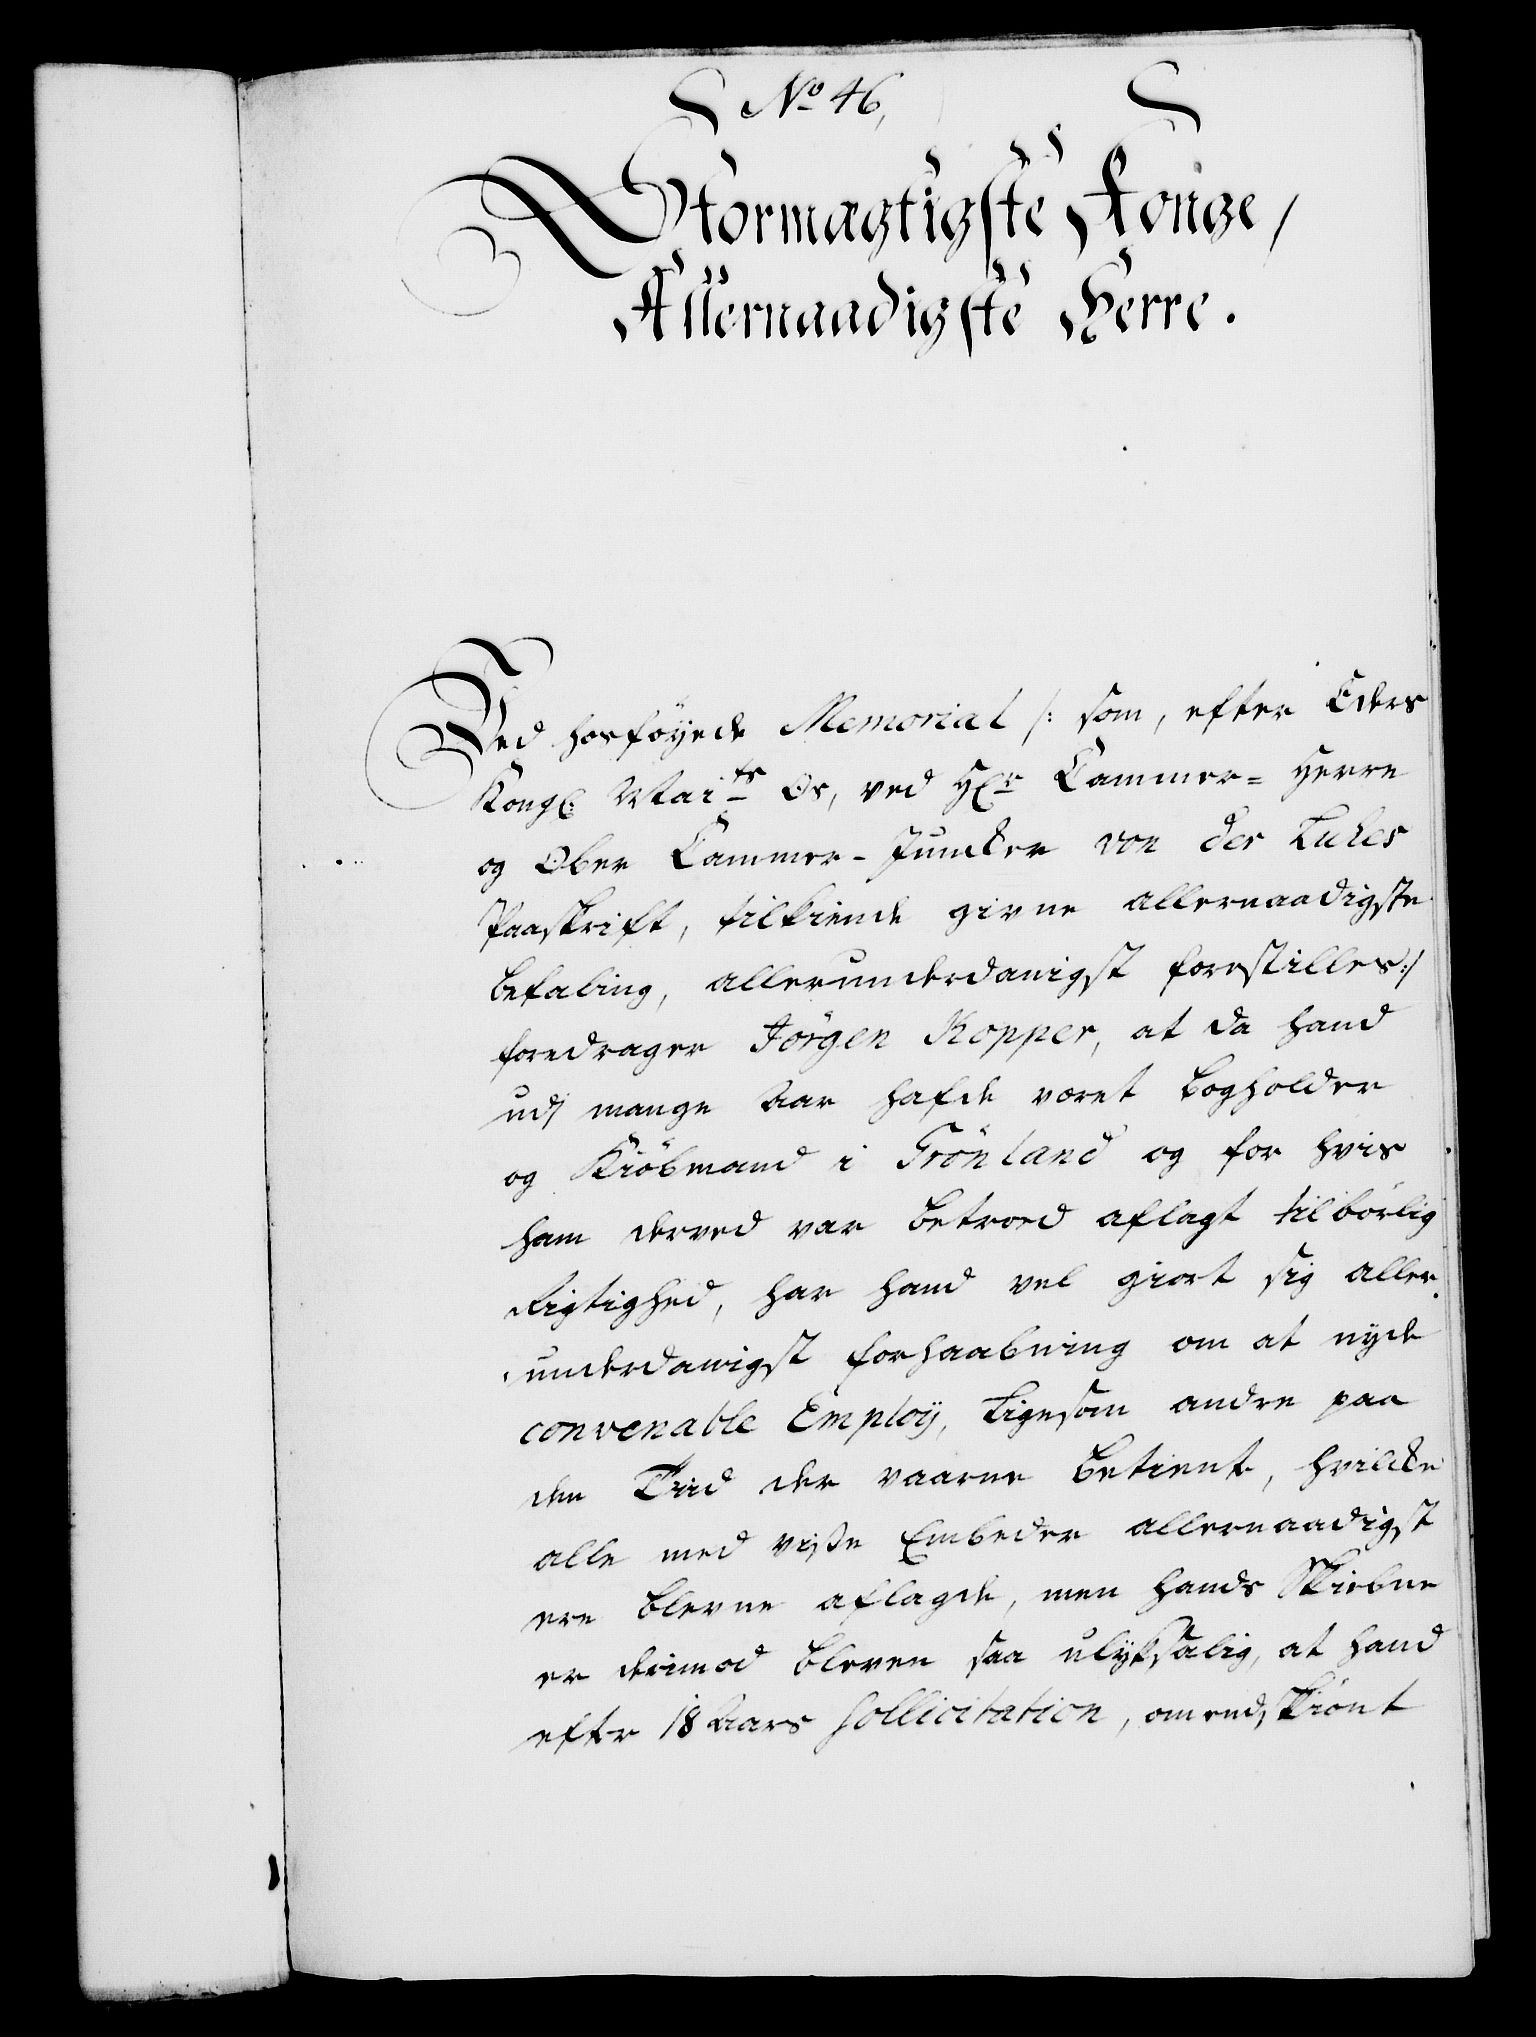 No 46,
Stormægtigste Konge,
Allernaadigste Herre.
Ved hosføyede Memorial /: som, efter Eders
Kongl: Mai:ts Os, ved Hr: Cammer=Herre
og Ober Cammer-Juncker von der Luhes
Paaskrift, tilkiende givne allernaadigste
befaling, allerunderdanigst forestilles:/
foredrager Jørgen Kopper, at da hand
udj mange Aar hafde været bogholder
og Kiøbmand i Grønland og for hvis
ham derved var betroed aflagt tilbørlig
Rigtighed, har hand vel giort sig aller
underdanigst forhaabning om at nyde
convenable Employ, ligesom andre paa
den Tiid der vaarne betient, hvilcke
alle med visse Embeder allernaadigst
ere blevne aflagde, men hands Skiebne
er derimod bleven saa ulyksalig, at hand
efter 18 Aars Sollicitation, omendskiønt